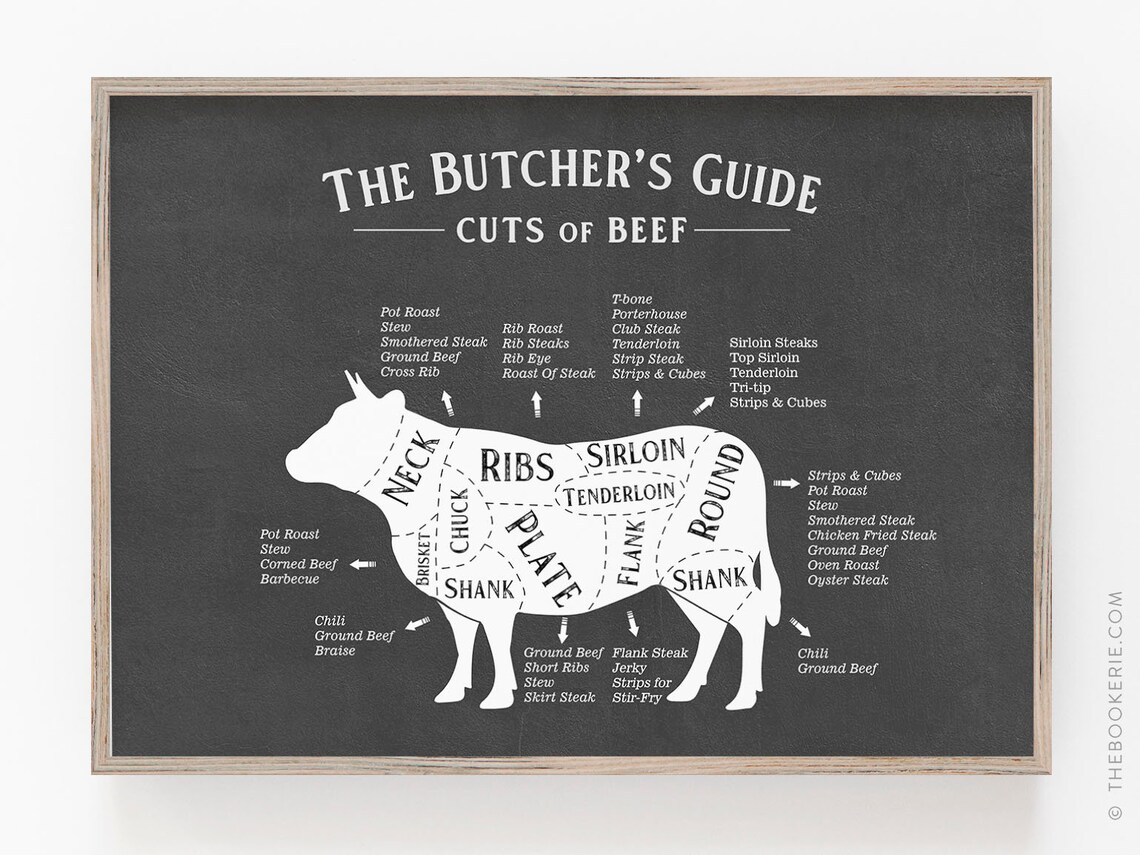 THE BUTCHER'S GUIDE
CUTS OF BEEF
Pot Roast
Stew
Smothered Steak
Ground Beef
Cross Rib
Rib Roast
Rib Steaks
Rib Eye
Roast Of Steak
T-bone
Porterhouse
Club Steak
Tenderloin
Strip Steak
Strips & Cubes
Sirloin Steaks
Top Sirloin
Tenderloin
Tri-tip
Strips & Cubes
NECK
RIBS
SIRLOIN
TENDERLOIN
ROUND
CHUCK
BRISKET
SHANK
PLATE
FLANK
SHANK
Strips & Cubes
Pot Roast
Stew
Smothered Steak
Chicken Fried Steak
Ground Beef
Oven Roast
Oyster Steak
Pot Roast
Stew
Corned Beef
Barbecue
Chili
Ground Beef
Braise
Ground Beef
Short Ribs
Stew
Skirt Steak
Flank Steak
Jerky
Strips for
Stir-Fry
Chili
Ground Beef
© THEBOOKERIE.COM